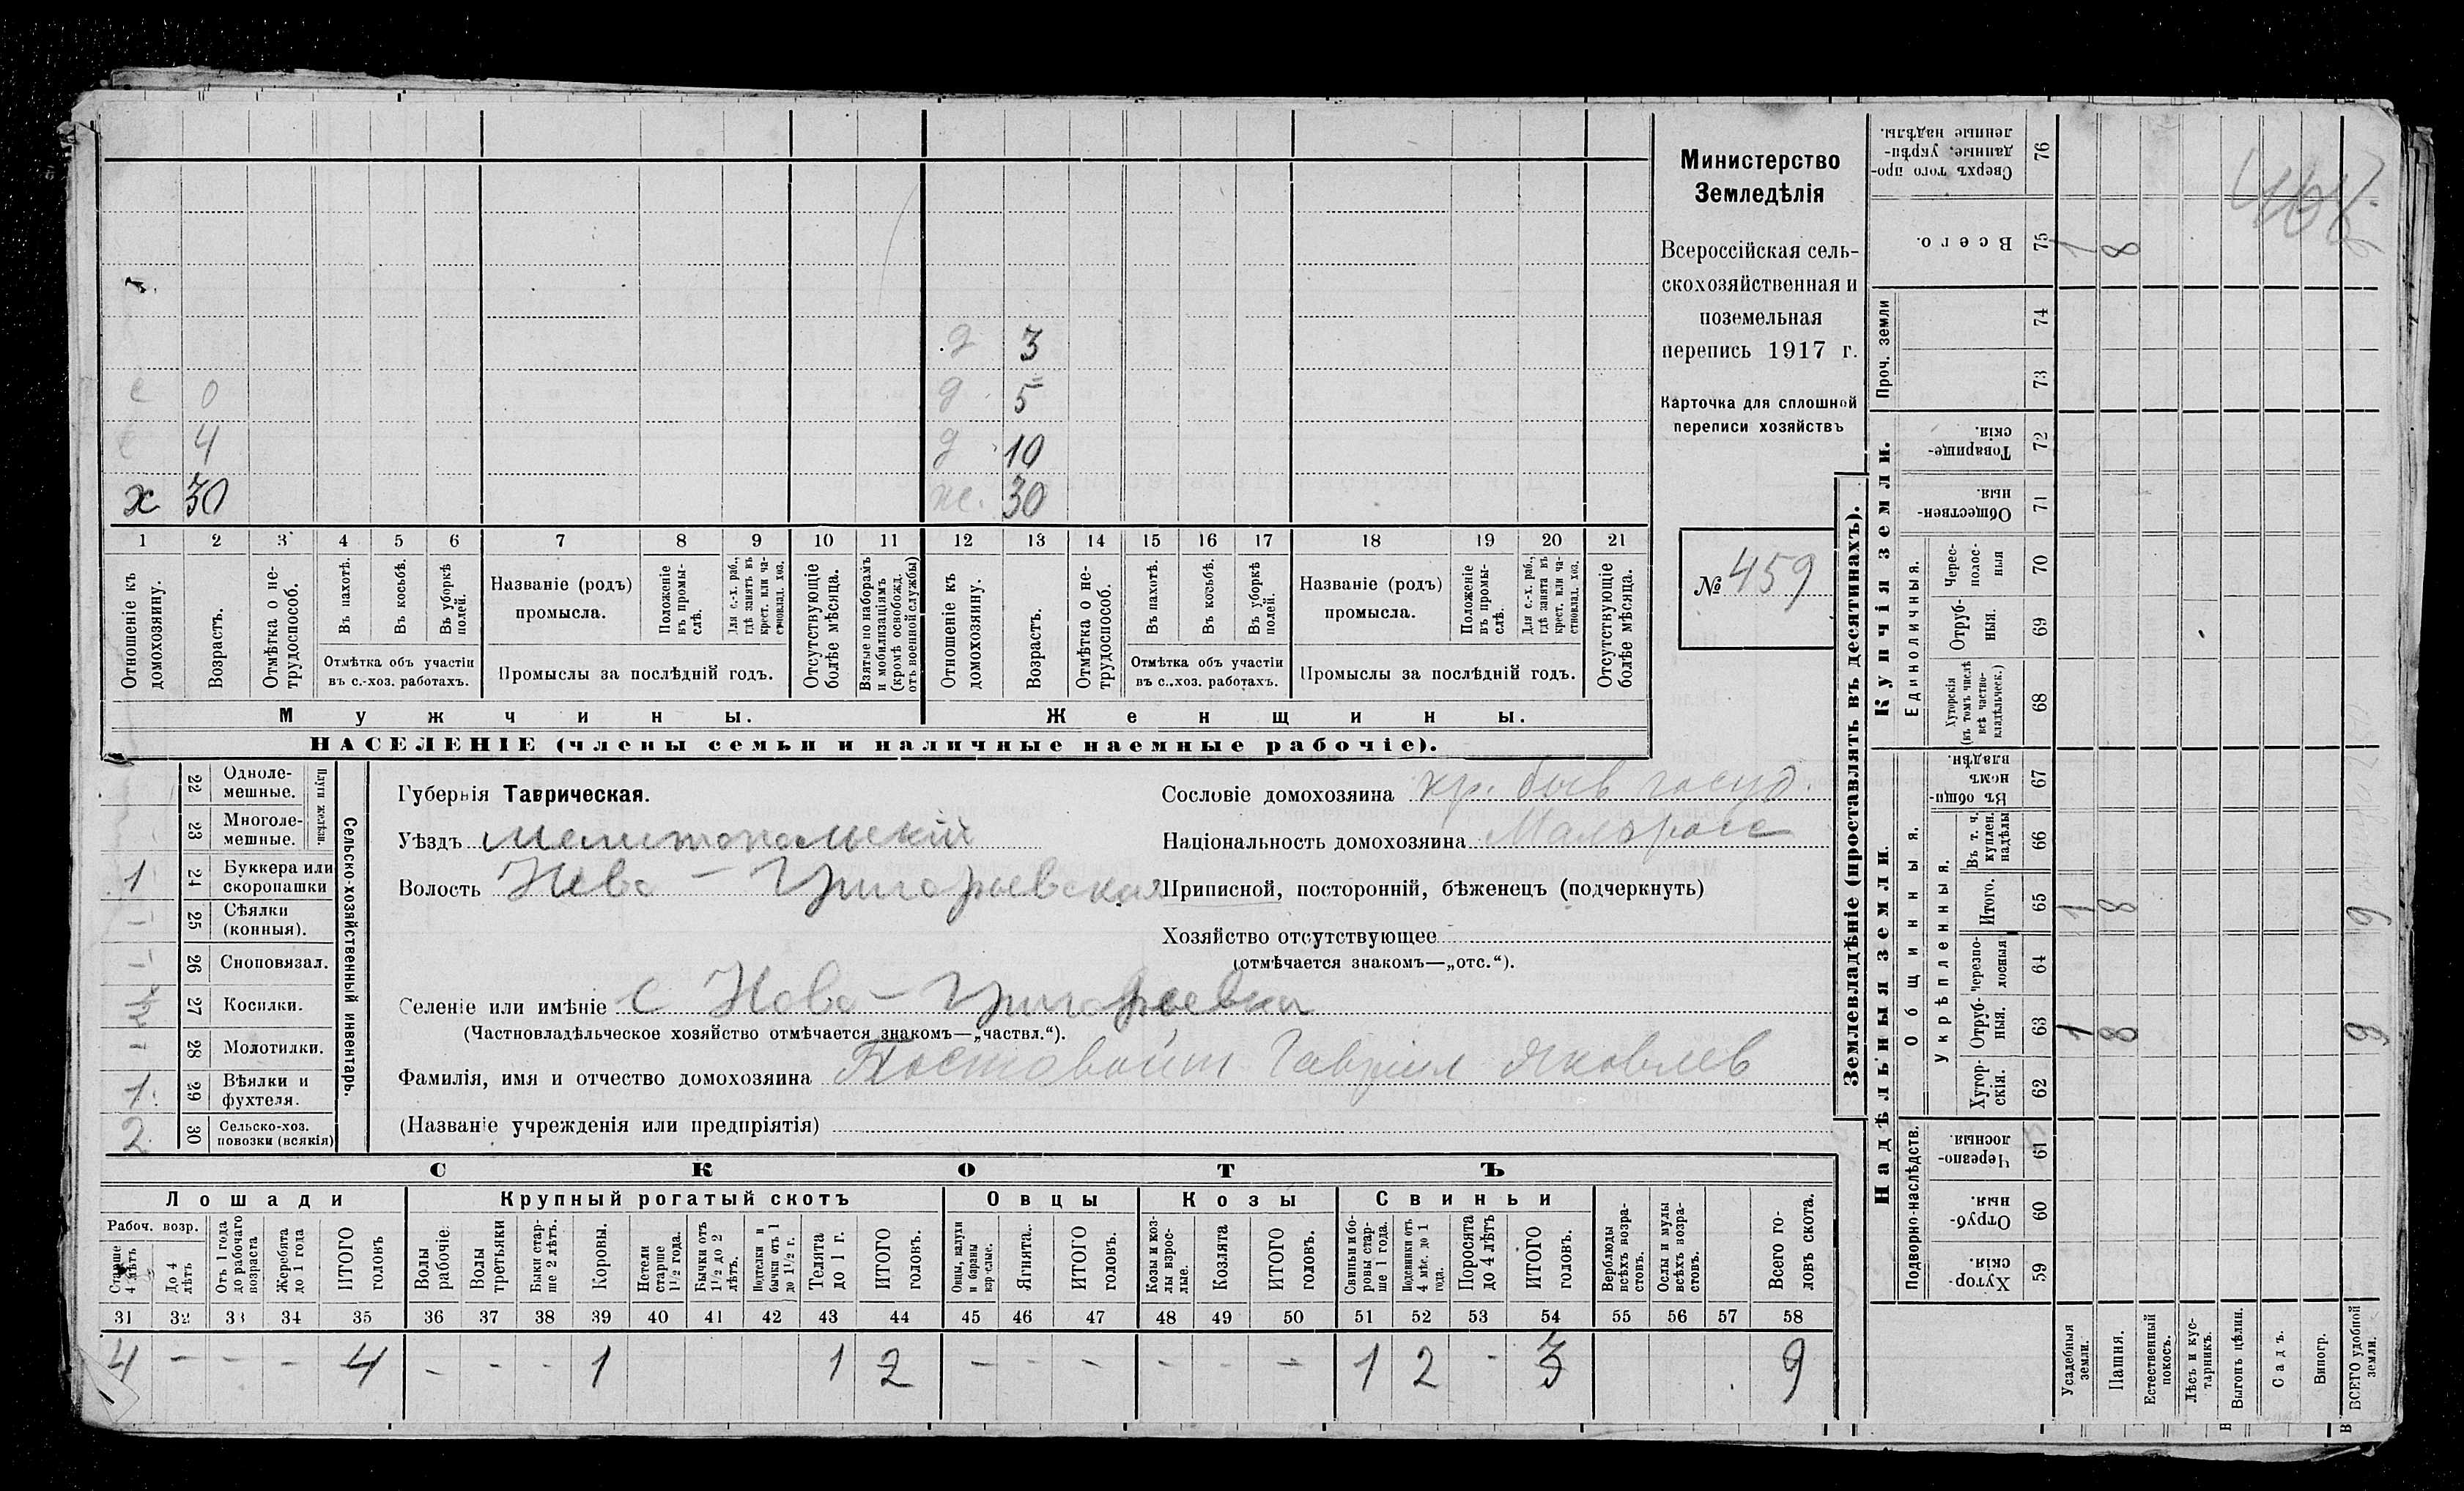 Министерство
Земледѣлія
Всероссійская сель-
скохозяйственная и
поземельная
перепись 1917 г.
Карточка для сплошной
переписи хозяйствъ
№ 459
д 3
с 0 д 5
с 4 д 10
х 30 ж. 30
1 2 3 4 5 6 7 8 9 10 11 12 13 14 15 16 17 18 19 20 21
Отношеніе къ домохозяину.
Возрастъ.
Отмѣтка о не-трудоспособ.
Въ пахотѣ.
Въ косьбѣ.
Въ уборкѣ полей.
Отмѣтка объ участіи
въ с.-хоз. работахъ.
Названіе (родъ)
промысла.
Положеніе въ промы-слѣ.
Для с.-х. раб., гдѣ занятъ въ крест. или ча-стновлад. хоз.
Промыслы за послѣдній годъ.
Отсутствующіе болѣе мѣсяца.
Взятые по наборамъ и мобилизаціямъ (кромѣ освобожд. отъ военной службы)
Отношеніе къ домохозяину.
Возрастъ.
Отмѣтка о не-трудоспособ.
Въ пахотѣ.
Въ косьбѣ.
Въ уборкѣ полей.
Отмѣтка объ участіи
въ с.-хоз. работахъ.
Названіе (родъ)
промысла.
Положеніе въ промы-слѣ.
Для с.-х. раб., гдѣ занята въ крест. или ча-стновлад. хоз.
Промыслы за послѣдній годъ.
Отсутствующіе болѣе мѣсяца.
Мужчины. Женщины.
НАСЕЛЕНІЕ (члены семьи и наличные наемные рабочіе).
Сельско-хозяйственный инвентарь.
Плуги желѣзн.
22 Одноле-мешные.
23 Многоле-мешные.
1 24 Буккера или скоропашки
– 25 Сѣялки (конныя).
– 26 Сноповязал.
27 Косилки.
– 28 Молотилки.
1. 29 Вѣялки и фухтеля.
2. 30 Сельско-хоз. повозки (всякія)
Губернія Таврическая.
Уѣздъ Мелитопольскій
Волость Ново-Григорьевская
Селеніе или имѣніе с Ново-Григорьевка
(Частновладѣльческое хозяйство отмѣчается знакомъ—„частвл.“).
Фамилія, имя и отчество домохозяина Постовойт Гавриил Яковлев
(Названіе учрежденія или предпріятія)
Сословіе домохозяина кр. быв госуд.
Національность домохозяина Малоросс
Приписной, посторонній, бѣженецъ (подчеркнуть)
Хозяйство отсутствующее
(отмѣчается знакомъ—„отс.“).
СКОТЪ
Лошади Крупный рогатый скотъ Овцы Козы Свиньи
Рабоч. возр.
Старше 4 лѣтъ
До 4 лѣтъ
Отъ 1 года до рабочаго возраста
Жеребята до 1 года
ИТОГО головъ
Волы рабочіе.
Волы третьяки
Быки стар-ше 2 лѣтъ.
Коровы.
Нетели старше 1½ года.
Бычки отъ 1½ до 2 лѣтъ.
Подтелки и бычки отъ 1 до 1½ г.
Телята до 1 г.
ИТОГО головъ.
Овцы, валухи и бараны взрослые.
Ягнята.
ИТОГО головъ.
Козы и коз-лы взрос-лые.
Козлята
ИТОГО головъ.
Свиньи и бо-ровы стар-ше 1 года.
Подсвинки отъ 4 мѣс. до 1 года.
Поросята до 4 лѣтъ
ИТОГО головъ.
Верблюды всѣхъ возра-стовъ.
Ослы и мулы всѣхъ возра-стовъ.
Всего го-ловъ скота.
31 32 33 34 35 36 37 38 39 40 41 42 43 44 45 46 47 48 49 50 51 52 53 54 55 56 57 58
4 – – – 4 – – – 1 1 2 – – – – – – 1 2 – 3 9
Землевладѣніе (проставлять въ десятинахъ).
Надѣльныя земли.
Купчія земли.
Проч. земли
Подворно-наслѣдств.
Общинныя.
Укрѣпленныя.
Единоличныя.
Сверхъ того про-данные, укрѣп-ленные надѣлы. 76
Всего. 75 1 8
74
73
Товарище-скія. 72
Обществен-ныя. 71
Черес-полос-ныя 70
Отруб-ныя. 69
Хуторскія (въ томъ числѣ всѣ частно-владѣльческ.) 68
Въ общи-номъ владѣн. 67
Въ т. ч. куплен. надѣлы 66
Итого. 65 1 8 9
Черезпо-лосныя 64
Отруб-ныя. 63 1 8 9
Хутор-скія. 62
Черезпо-лосныя. 61
Отруб-ныя. 60
Хутор-скія. 59
Усадебныя земли.
Пашня.
Естественный покосъ.
Лѣсъ и кус-тарникъ.
Выгонъ цѣлин.
Садъ.
Виногр.
ВСЕГО удобной земли.